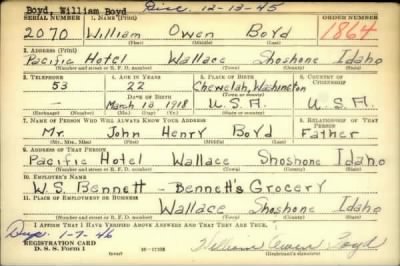 Boyd, William Boyd Disc. 12-13-45
SERIAL NUMBER 1. NAME (Print) ORDER NUMBER
2070 William Owen Boyd 1864
(First) (Middle) (Last)
2. ADDRESS (Print)
Pacific Hotel Wallace Shoshone Idaho
(Number and street or R. F. D. number) (Town) (County) (State)
3. TELEPHONE 4. AGE IN YEARS 5. PLACE OF BIRTH 6. COUNTRY OF CITIZENSHIP
53 22 Chewelah, Washington
DATE OF BIRTH (Town or county)
— March 10 1918 U.S.A. U.S.A.
(Mo.) (Day) (Yr.) (State or country)
7. NAME OF PERSON WHO WILL ALWAYS KNOW YOUR ADDRESS 8. RELATIONSHIP OF THAT PERSON
Mr. John Henry Boyd Father
(Mr., Mrs., Miss) (First) (Middle) (Last)
9. ADDRESS OF THAT PERSON
Pacific Hotel Wallace Shoshone Idaho
(Number and street or R. F. D. number) (Town) (County) (State)
10. EMPLOYER'S NAME
W.S. Bennett - Bennett's Grocery
11. PLACE OF EMPLOYMENT OR BUSINESS
Wallace Shoshone Idaho
(Number and street or R. F. D. number) (Town) (County) (State)
I AFFIRM THAT I HAVE VERIFIED ABOVE ANSWERS AND THAT THEY ARE TRUE.
1-7-46
REGISTRATION CARD
D. S. S. Form 1 William Owen Boyd
(over) (Registrant's signature)